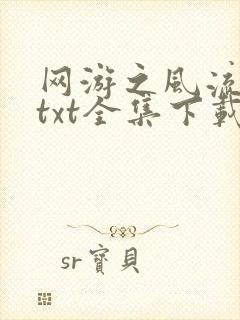 网游之风流
txt全集下载
sr寶貝